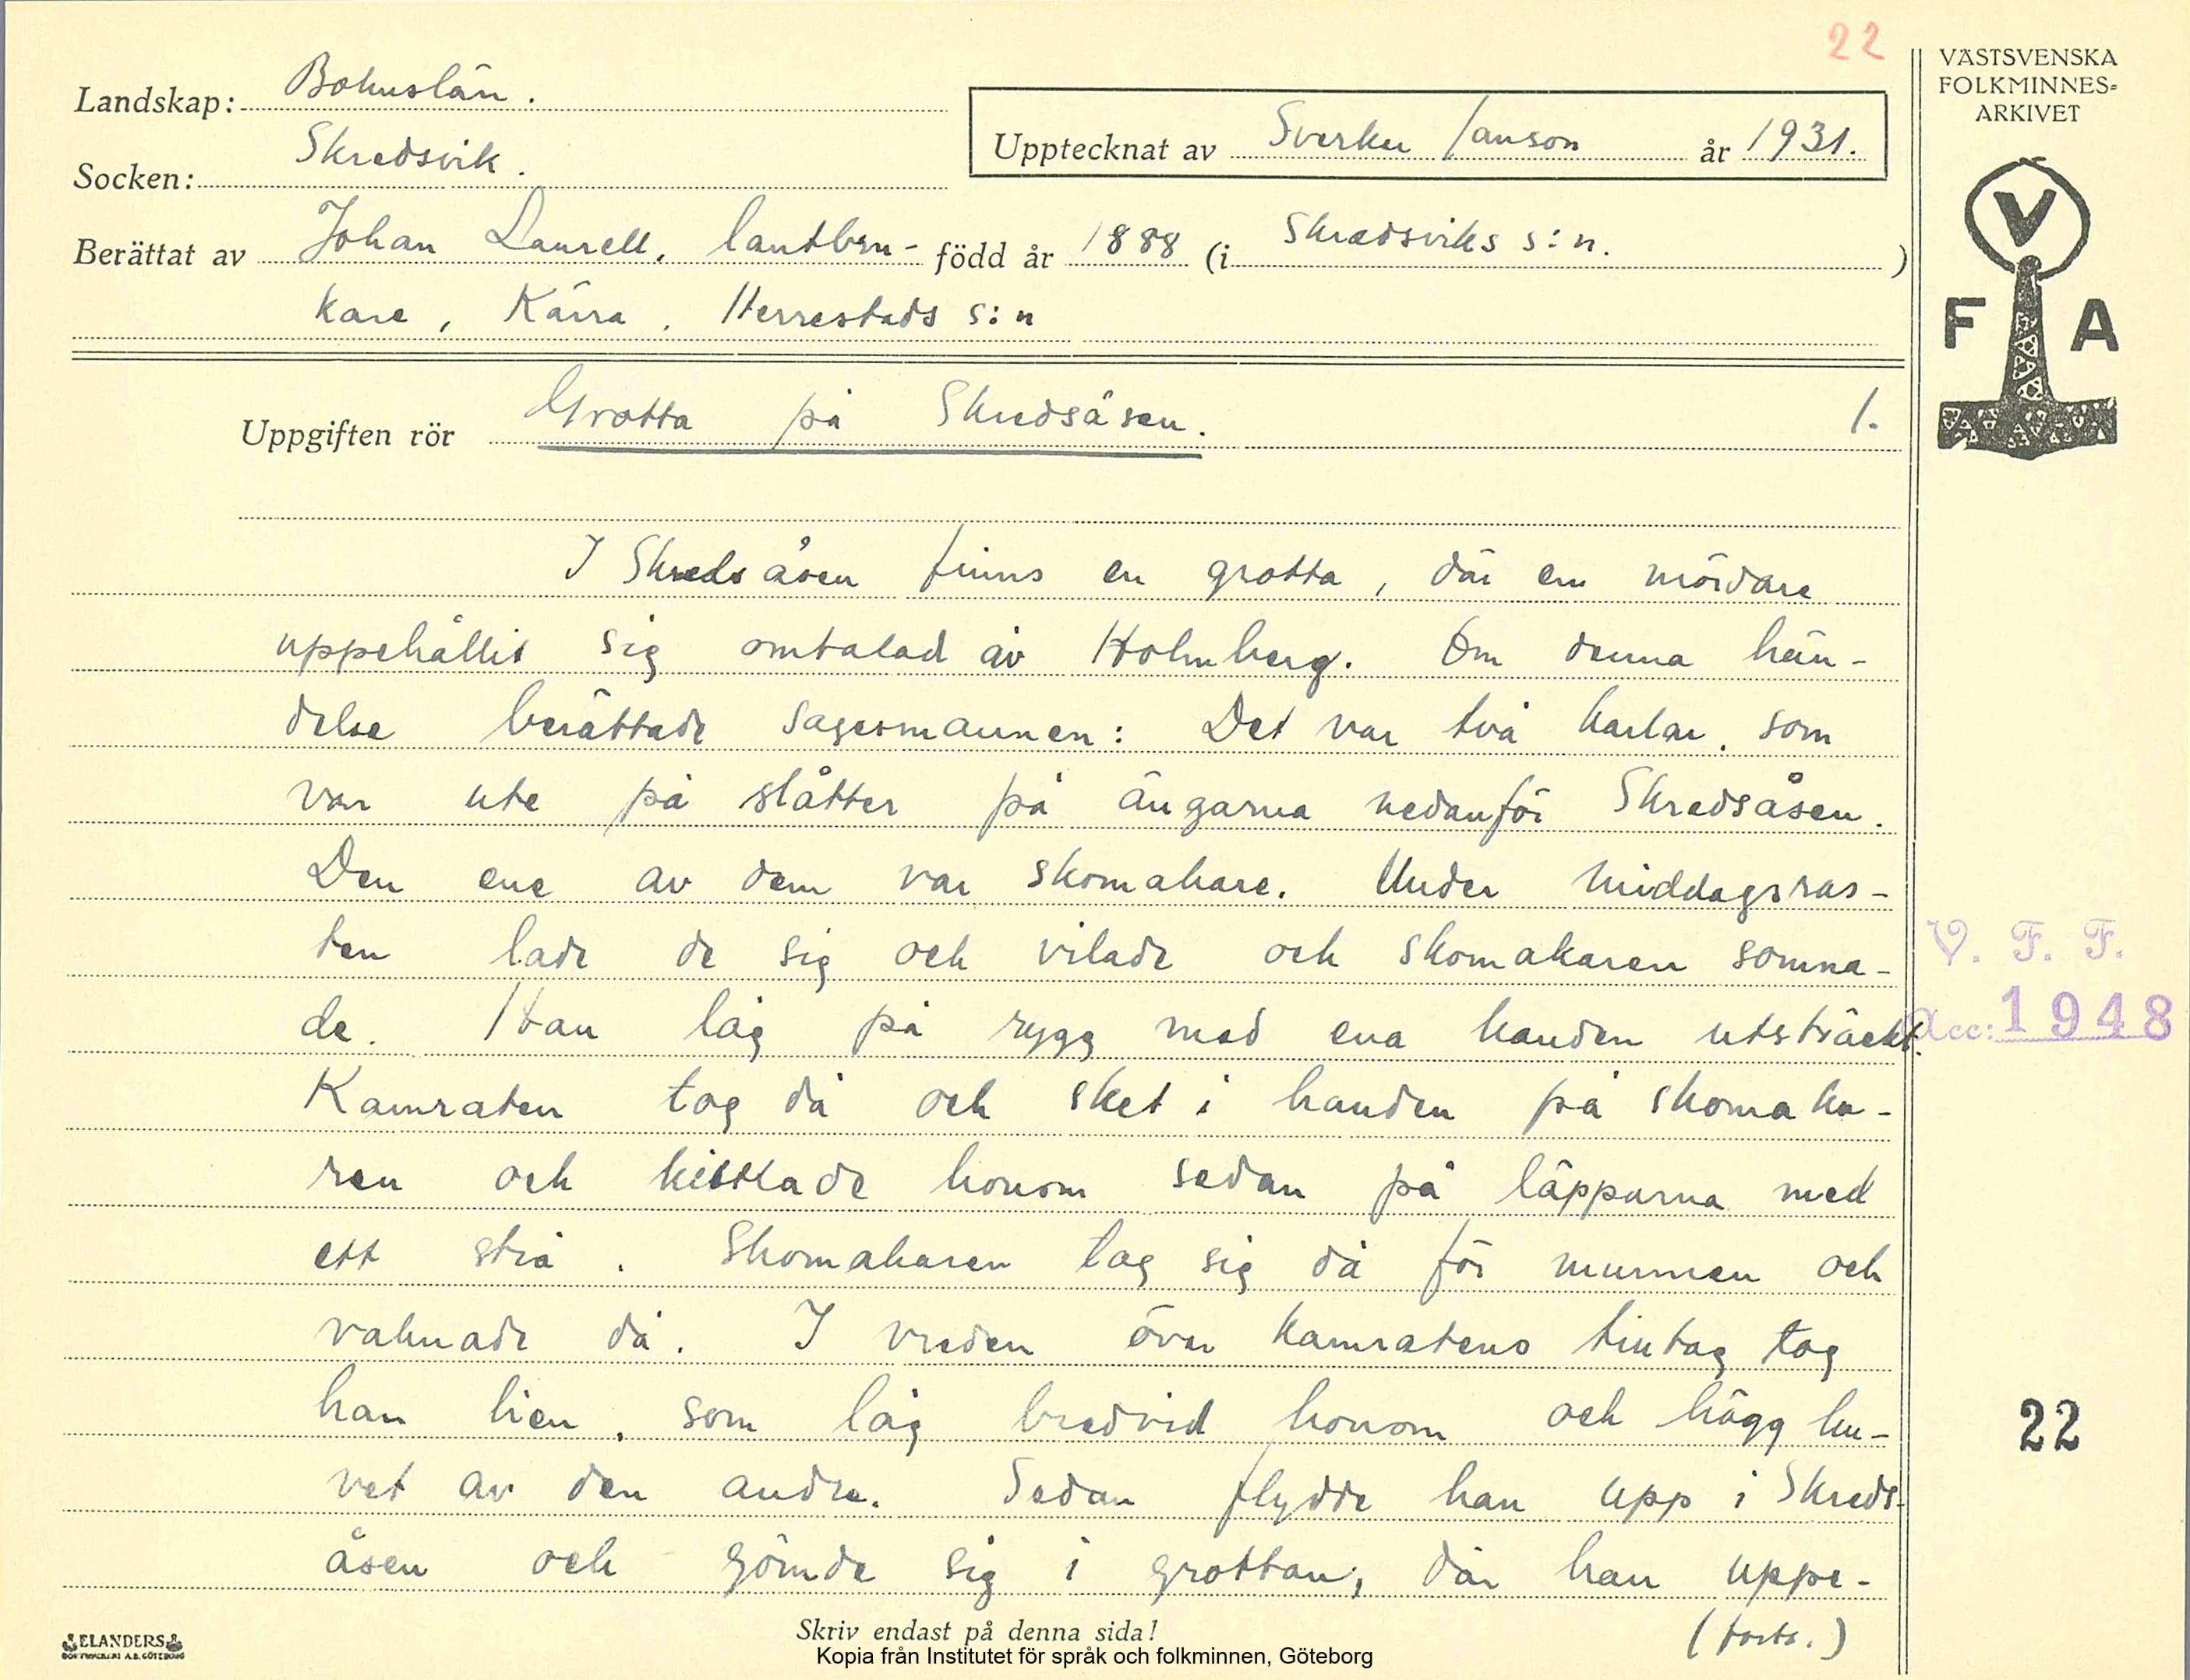 22
VÄSTSVENSKA
FOLKMINNES-
ARKIVET
Landskap: Bohuslän.
Upptecknat av Sverker Janson år 1931.
Socken: Skredsvik.
Berättat av Johan Laurell, lantbru- född år 1888 (i Skredsviks s:n. )
kare, Kärra, Herrestads s:n
V
F A
Uppgiften rör Grotta på Skredsåsen. 1.
I Skredsåsen finns en grotta, där en mördare
uppehållit sig omtalad av Holmberg. Om denna hän-
delse berättade sagesmannen: Det var två karlar, som
var ute på slåtter på ängarna nedanför Skredsåsen.
Den ene av dem var skomakare. Under middagsras-
ten lade de sig och vilade och skomakaren somna-
de. Han låg på rygg med ena handen utsträckt.
Kamraten tog då och sket i handen på skomaka-
ren och kittlade honom sedan på läpparna med
ett strå. Skomakaren tog sig då för munnen och
vaknade då. I vreden över kamratens tintag tog
han lien, som låg bredvid honom och högg hu-
vet av den andre. Sedan flydde han upp i Skreds-
åsen och gömde sig i grottan, där han uppe-
(forts.)
V. F. F.
Acc: 1948
22
Skriv endast på denna sida!
ELANDERS
BOKTRYCKERI A.B. GÖTEBORG
Kopia från Institutet för språk och folkminnen, Göteborg